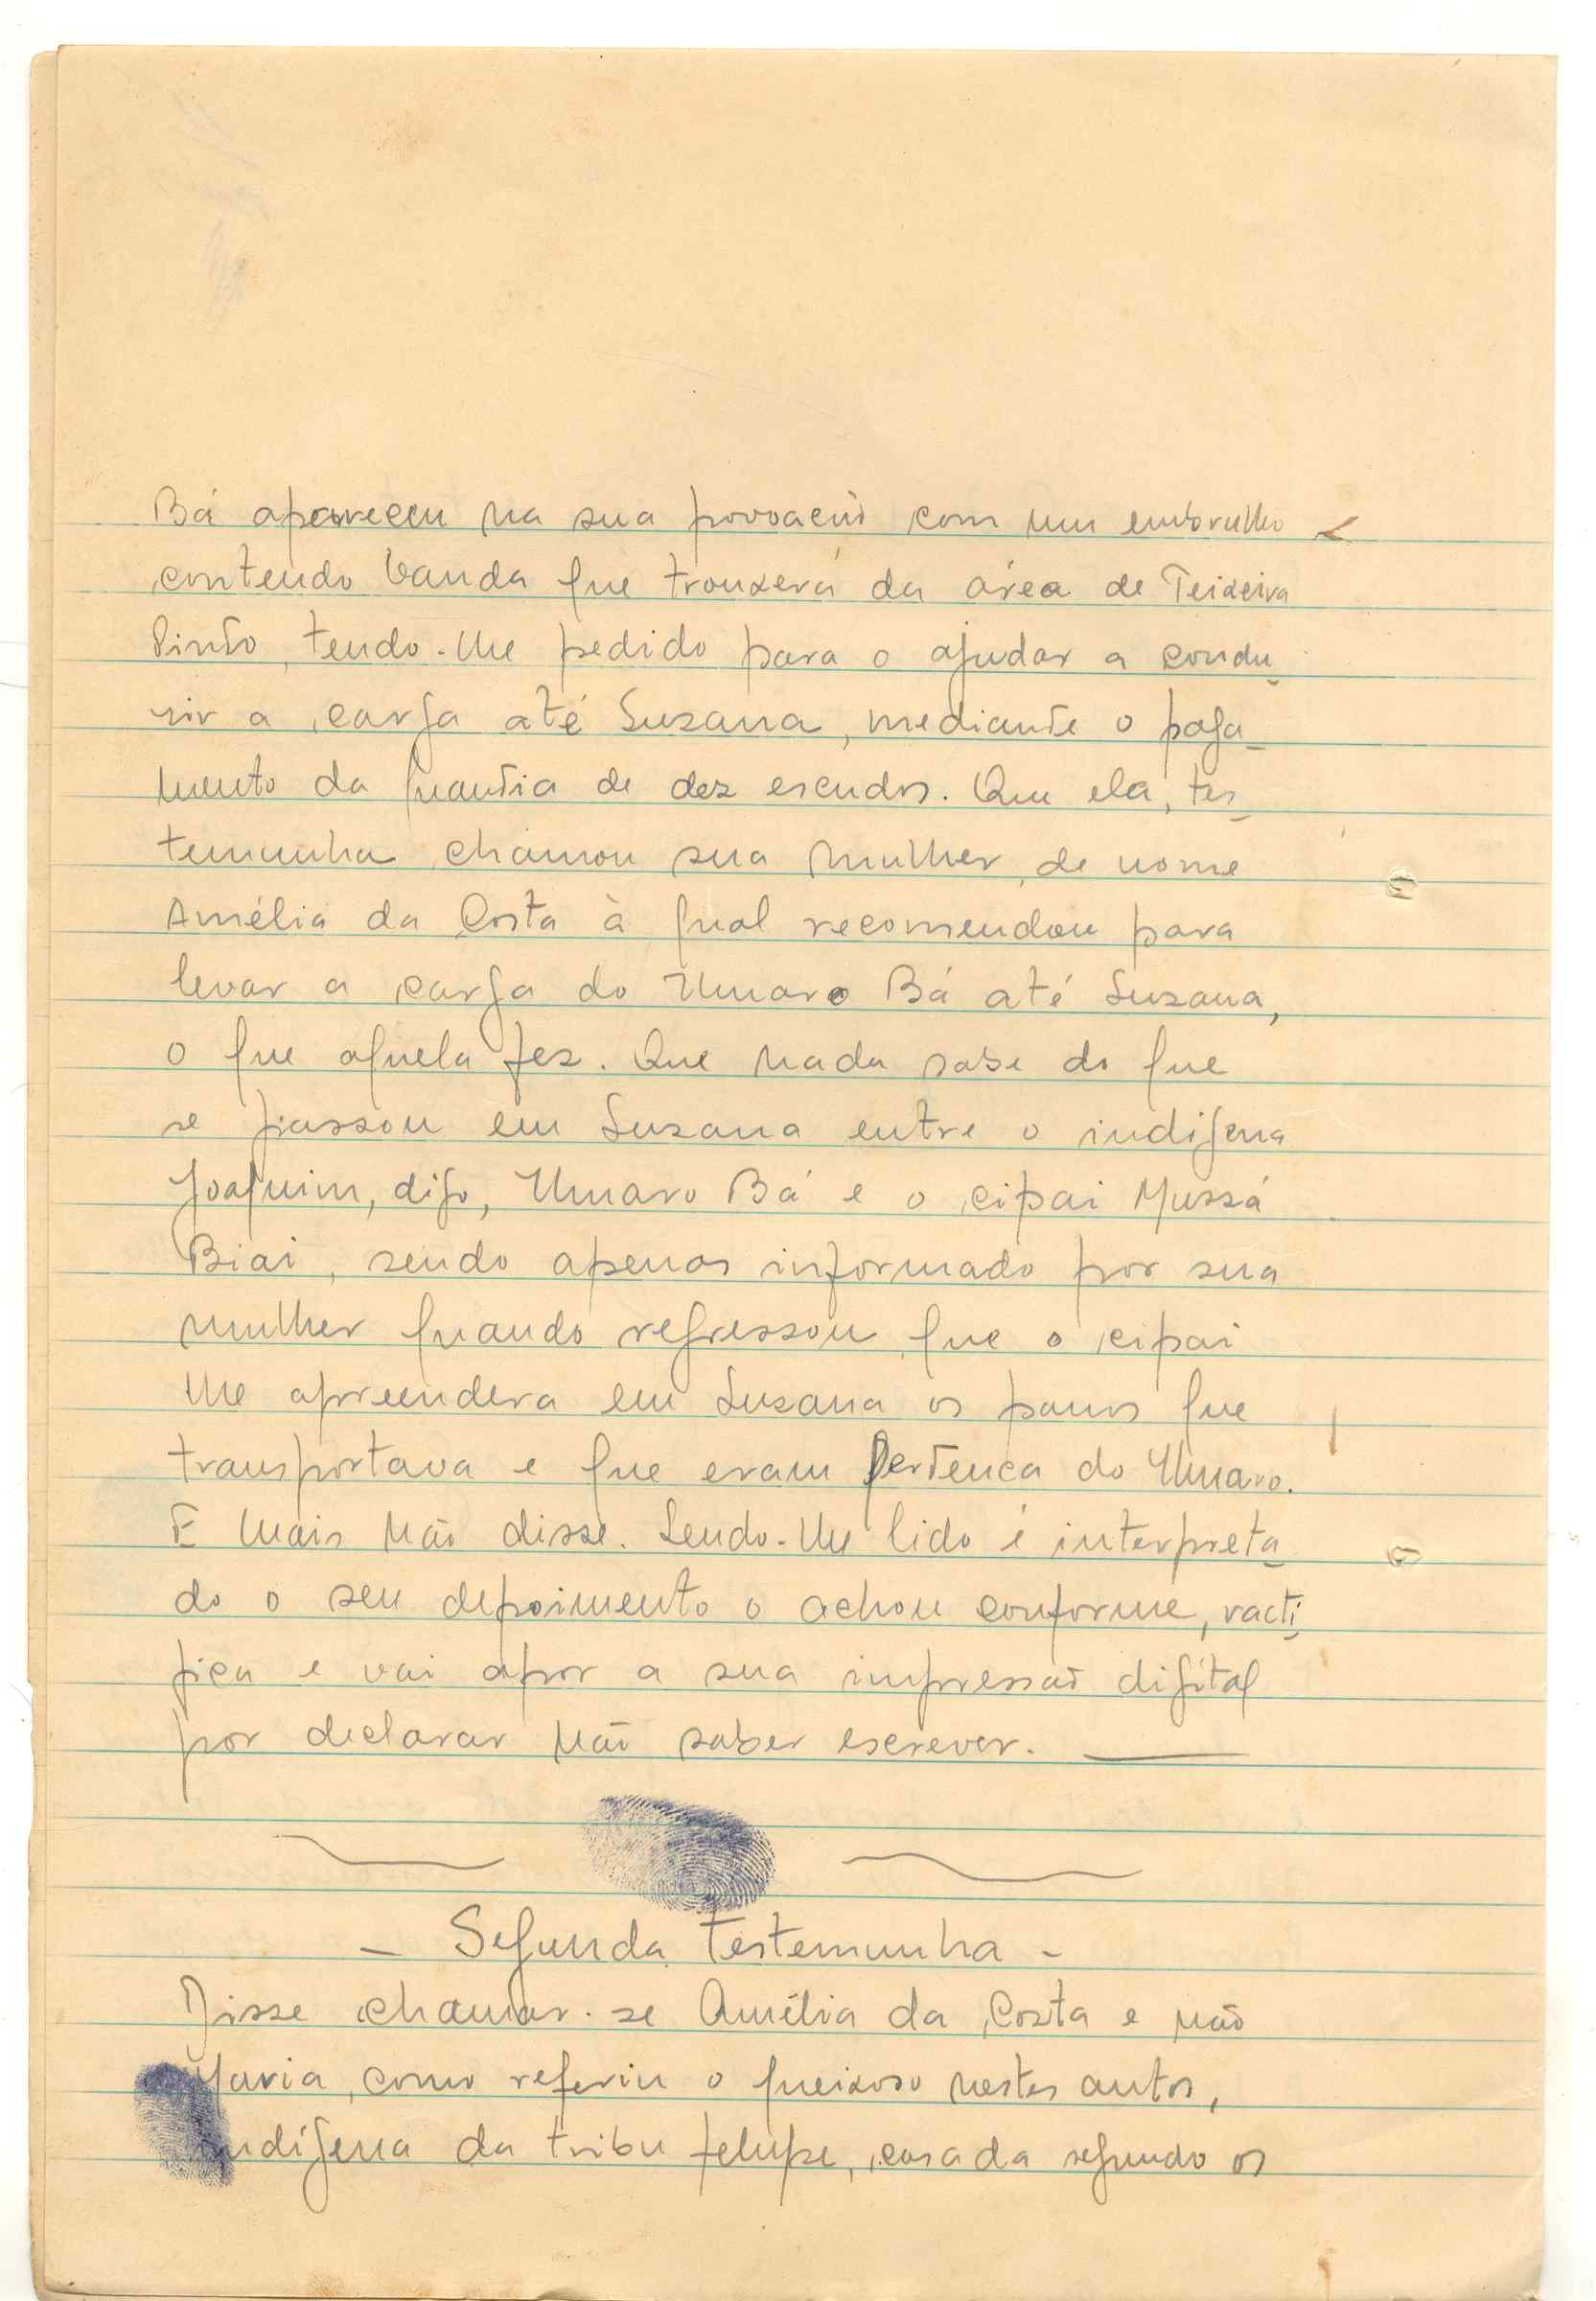 Bá apareceu na sua povoação com um embrulho
contendo banda que trouxera da área de Teixeira
Pinto, tendo-lhe pedido para o ajudar a condu_
zir a carga até Suzana, mediante o paga_
mento da quantia de dez escudos. Que ela, tes_
temunha chamou sua mulher, de nome
Amélia da Costa à qual recomendou para
levar a carga do Umaro Bá até Suzana,
o que aquela fez. Que nada sabe do que
se passou em Suzana entre o indígena
Joaquim, digo, Umaro Bá e o cipai Mussá
Biai, sendo apenas informado por sua
mulher quando regressou, que o cipai
lhe apreendera em Suzana os panos que
transportava e que eram pertença do Umaro.
E mais não disse. Sendo-lhe lido e interpreta_
do o seu depoimento o achou conforme, racti_
fica e vai apor a sua impressão digital
por declarar não saber escrever. ———
– Segunda Testemunha –
Disse chamar-se Amélia da Costa e não
Maria, como referiu o queixoso nestes autos,
indígena da tribu felupe, casada segundo os